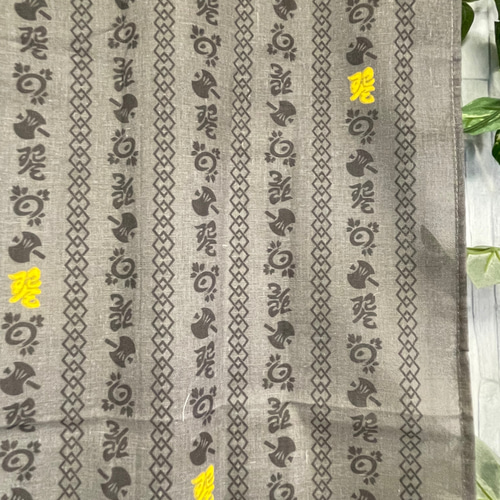 琴琴琴琴
琴琴琴琴
琴琴琴琴琴
琴琴琴琴
琴琴琴琴